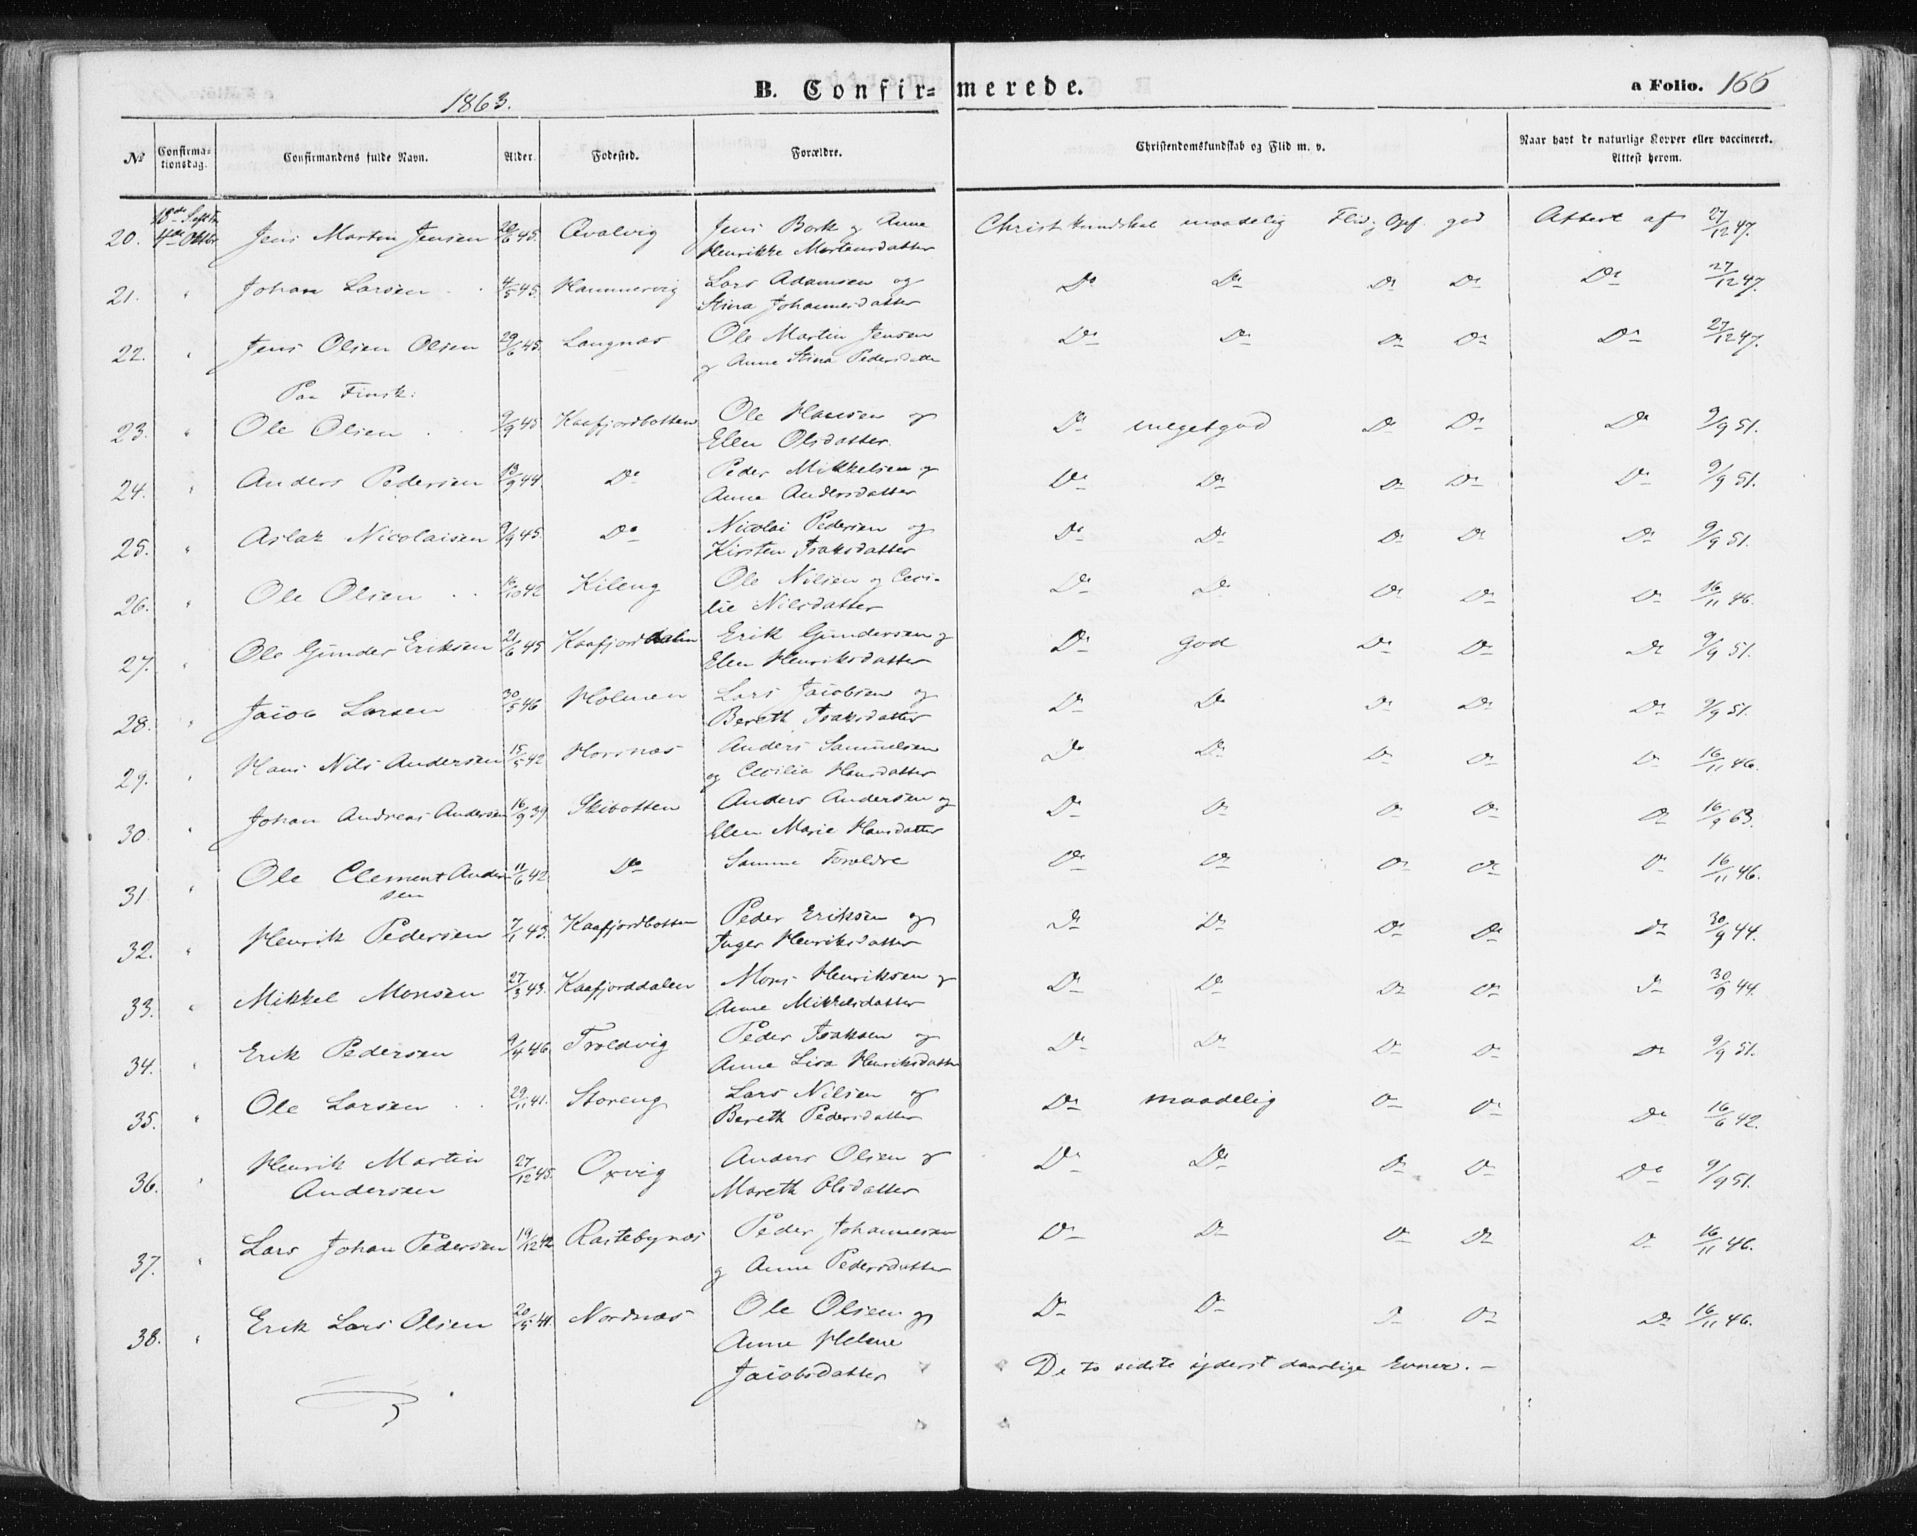 1863. B. Confirmerede. a Folio. 166
No Confirmationsdag. Confirmandens fulde Navn. Alder. Fødested. Forældre. Christendomskundskab og Flid m. v. Naar havt de naturlige Kopper eller vaccineret. Attest herom.
20. 4de Jens Martin Jensen 20/6 45. Qvalvig Jens Bork og Anne Christ. kundskab maadelig Flid, Opf. god Attest af 27/12 47.
Henrikke Mortensdatter
21. " Johan Larsen 4/5 45. Hammervig Lars Adamsen og Do Do Do Do Do 27/12 47.
Stina Johannesdatter
22. " Jens Olsen Olsen 29/6 45. Langnæs Ole Martin Jensen Do Do Do Do Do 27/12 47.
og Anne Stina Pedersdatter
Paa Finsk:
23. " Ole Olsen 9/9 45 Kaafjordbotten Ole Hansen og Do megetgod Do Do Do 9/9 51.
Elen Olsdatter
24. " Anders Pedersen 13/9 44. Do Peder Mikkelsen og Do Do Do Do Do 9/9 51.
Anne Andersdatter
25. " Aslak Nicolaisen 9/9 45. Do Nicolai Pedersen og Do Do Do Do Do 9/9 51.
Kirsten Isaksdatter
26. " Ole Olsen 16/10 42 Kileng Ole Nilsen og Ceci- Do Do Do Do Do 16/11 46.
lie Nilsdatter
27. " Ole Gunder Eriksen 21/6 45 Kaafjorddalen Erik Gundersen og Do god Do Do Do 9/9 51.
Elen Henriksdatter
28. " Jacob Larsen 30/5 46 Holmen Lars Jacobsen og Do Do Do Do Do 9/9 51.
Bereth Isaksdatter
29. " Hans Nils Andersen 15/5 42 Horsnæs Anders Samuelsen Do Do Do Do Do 16/11 46.
og Cecilia Hansdatter
30. " Johan Andreas Andersen 16/9 39 Skibotten Anders Andersen og Do Do Do Do Do 16/9 63.
Elen Marie Hansdatter
31 " Ole Clement Ander- 11/6 42. Do Samme Forældre Do Do Do Do Do 16/11 46.
sen
32. " Henrik Pedersen 7/1 43. Kaafjordbotten Peder Eriksen og Do Do Do Do Do 30/9 44.
Inger Henriksdatter
33. " Mikkel Monsen 27/3 43. Kaafjorddalen Mons Henriksen og Do Do Do Do Do 30/9 44.
Anne Mikkelsdatter
34. " Erik Pedersen 9/4 46. Troldvig Peder Isaksen og Do Do Do Do Do 9/9 51.
Anne Lisa Henriksdatter
35. " Ole Larsen 29/11 41. Storeng Lars Nilsen og Do maadelig Do Do Do 16/6 42.
Bereth Pedersdatter
36. " Henrik Martin 27/12 45. Oxvig Anders Olsen og Do Do Do Do Do 9/9 51.
Andersen Mareth Olsdatter
37. " Lars Johan Pedersen 19/12 42 Rastebynæs Peder Johannesen Do Do Do Do Do 16/11 46.
og Anne Pedersdatter
38. " Erik Lars Olsen 20/5 41. Nordnæs Ole Olsen og Do Do Do Do Do 16/11 46.
Anne Helene
Jacobsdatter De to sidste yderst daarlige Evner. –